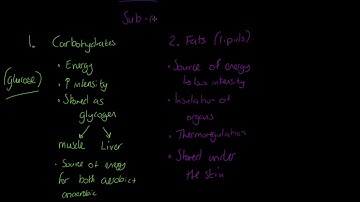 Sub-
1. Carbohydrates
(glucose)
• Energy
↑ intensity
• Stored as
glycogen
muscle Liver
• Source of energy
for both aerobic +
anaerobic
2. Fats (Lipids)
• Source of energy
low intensity
• Insulation of
organs
• Thermoregulation
• Stored under
the skin